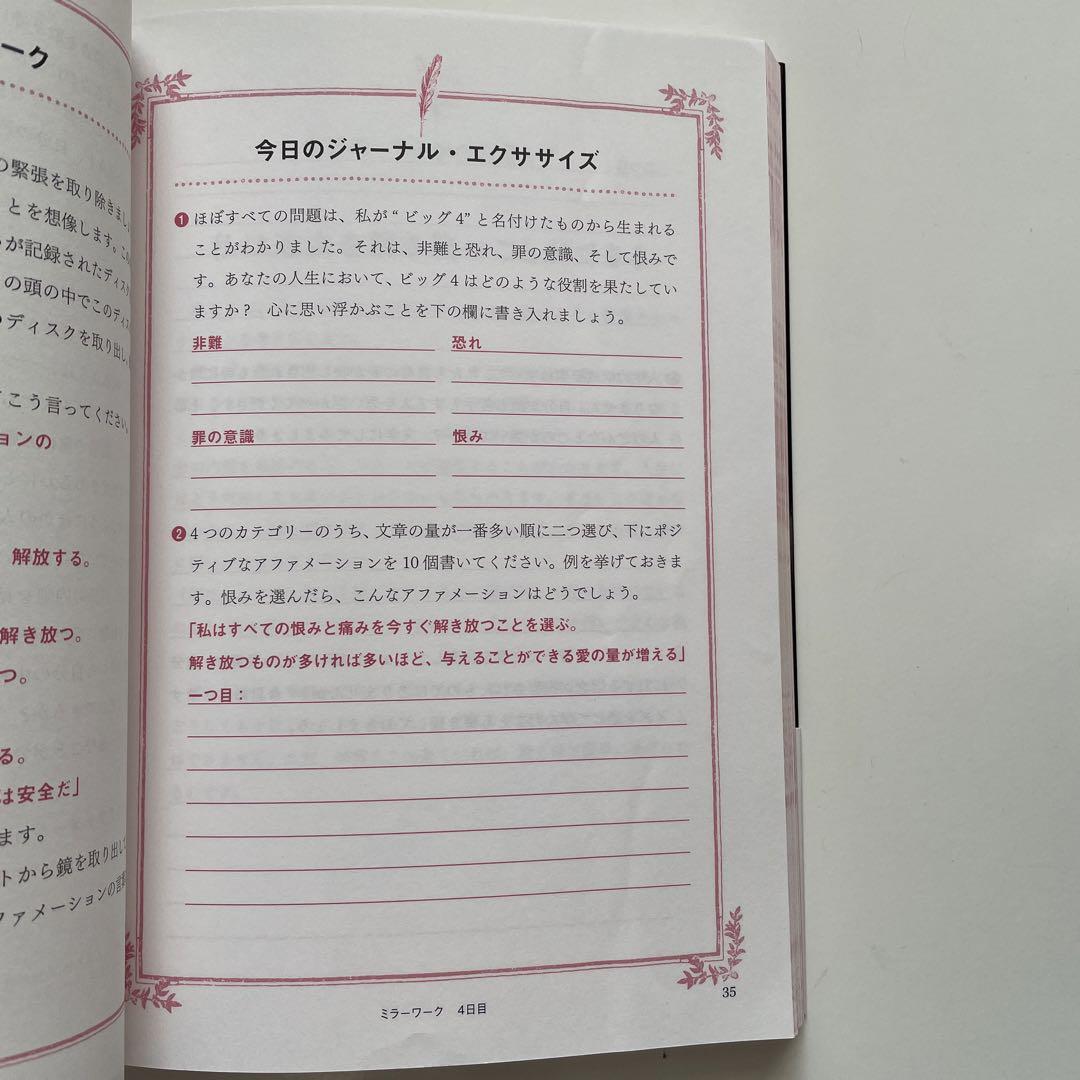 ーク
の緊張を取り除きまし
とを想像します。この
が記録されたディスク
の頭の中でこのディス
ディスクを取り出し、
こう言ってください。
ションの
解放する。
解き放つ。
つ。
る。
は安全だ」
ます。
トから鏡を取り出して
ファメーションの言葉
今日のジャーナル・エクササイズ
❶ ほぼすべての問題は、私が“ ビッグ4” と名付けたものから生まれる
ことがわかりました。それは、非難と恐れ、罪の意識、そして恨みで
す。あなたの人生において、ビッグ4はどのような役割を果たしてい
ますか? 心に思い浮かぶことを下の欄に書き入れましょう。
非難 恐れ
罪の意識 恨み
❷ 4つのカテゴリーのうち、文章の量が一番多い順に二つ選び、下にポジ
ティブなアファメーションを10個書いてください。例を挙げておきま
す。恨みを選んだら、こんなアファメーションはどうでしょう。
「私はすべての恨みと痛みを今すぐ解き放つことを選ぶ。
解き放つものが多ければ多いほど、与えることができる愛の量が増える」
一つ目：
35
ミラーワーク 4日目